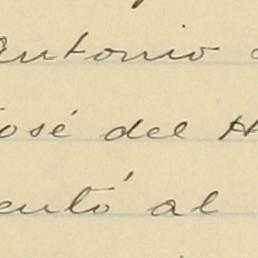 Antonio
José del H
entó al